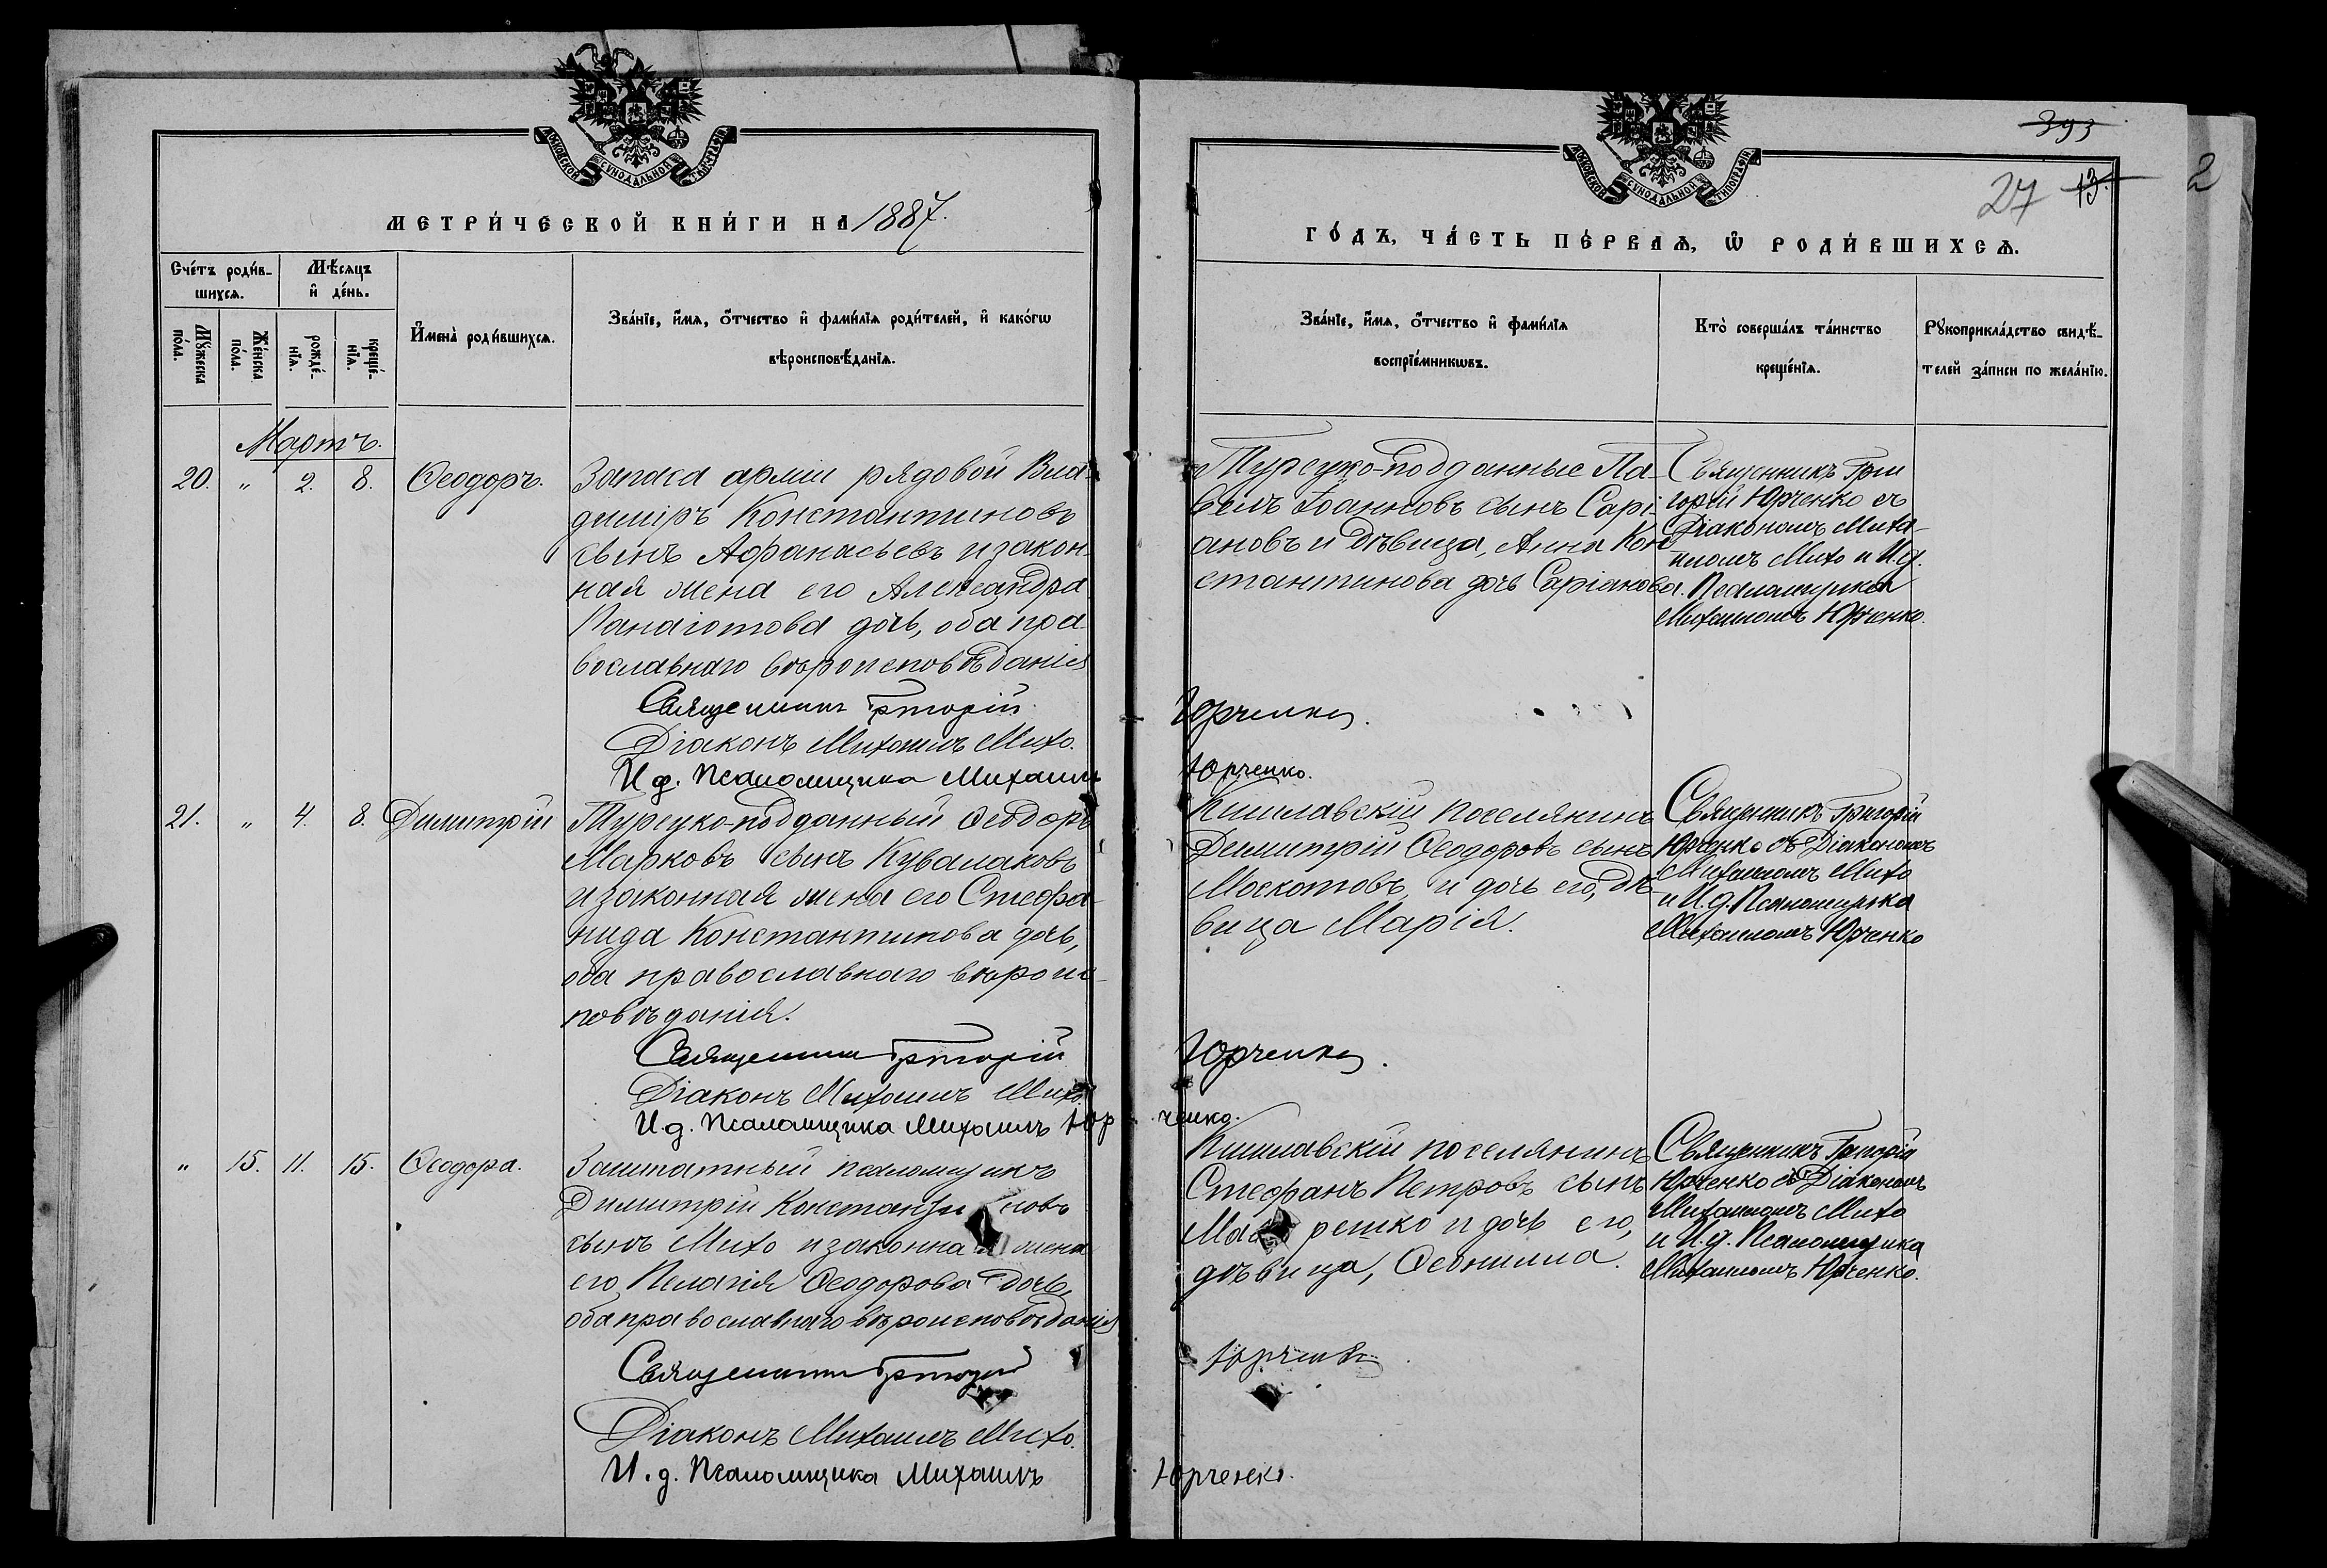 МОСКОВСКОЙ СѴНОДАЛЬНОЙ ТИПОГРАФІИ
МЕТРИ́ЧЕСКОЙ КНИ́ГИ НА 1887.
Сче́тъ роди́в-
шихсѧ.
Мѣ́сѧцъ
и҆ де́нь.
Мꙋ́жеска
по́ла.
Же́нска
по́ла.
рожде́-
нїѧ.
креще́-
нїѧ.
И҆мена̀ роди́вшихсѧ.
Зва́нїе, и҆́мѧ, ѻ҆́тчество и҆ фами́лїѧ роди́телей, и҆ како́гѡ
вѣроисповѣ́данїѧ.
Мартъ.
20. " 2. 8. Ѳеодоръ.
Запаса арміи рядовой Вла-
диміръ Константиновъ
сынъ Афанасьевъ и закон-
ная жена его Александра
Панаіотова дочь, оба пра-
вославнаго вѣроисповѣданія
Священникъ Григорій
Діаконъ Михаилъ Михо.
И. д. Псаломщика Михаилъ
21. " 4. 8. Димитрій
Турецко-подданный Ѳеодоръ
Марковъ сынъ Кувалаковъ
и законная жена его Стефа-
нида Константинова дочь,
оба православнаго вѣроис-
повѣданія.
Священникъ Григорій
Діаконъ Михаилъ Михо.
И. д. Псаломщика Михаилъ Юр
" 15. 11. 15. Ѳеодора.
Заштатный псаломщикъ
Димитрій Константиновъ
сынъ Михо и законная жена
его Пелагія Ѳеодорова дочь,
оба православнаго вѣроисповѣданія
Священникъ Григорій
Діаконъ Михаилъ Михо.
И. д. Псаломщика Михаилъ
393
27 13. 2
МОСКОВСКОЙ СѴНОДАЛЬНОЙ ТИПОГРАФІИ
ГО́ДЪ, ЧА́СТЬ ПЕ́РВАѦ, Ѡ҆ РОДИ́ВШИХСѦ.
Зва́нїе, и҆́мѧ, ѻ҆́тчество и҆ фами́лїѧ
воспрїе́мникѡвъ.
Кто̀ соверша́лъ та́инство
креще́нїѧ.
Рꙋкоприкла́дство свидѣ́-
телей за́писи по жела́нїю.
Турецко-подданные Па-
велъ Іоанновъ сынъ Сарі-
ановъ и дѣвица, Анна Кон-
стантинова дочь Саріанова.
Священникъ Гри
горій Юрченко съ
Діакономъ Миха-
иломъ Михо и И. д.
Псаломщика
Михаиломъ Юрченко.
Юрченко.
Юрченко.
Кишлавскій поселянинъ
Димитрій Ѳеодоровъ сынъ
Москотовъ, и дочь его, дѣ-
вица Марія.
Священникъ Григорій
Юрченко съ Діакономъ
Михаиломъ Михо
и И. д. Псаломщика
Михаиломъ Юрченко
Юрченко.
ченко.
Кишлавскій поселянинъ
Стефанъ Петровъ сынъ
решко и дочь его,
дѣвица, Ѳеонилла.
Священникъ Григорій
Юрченко съ Діакономъ
Михаиломъ Михо
и И. д. Псаломщика
Михаиломъ Юрченко.
Юрченко
Юрченко.